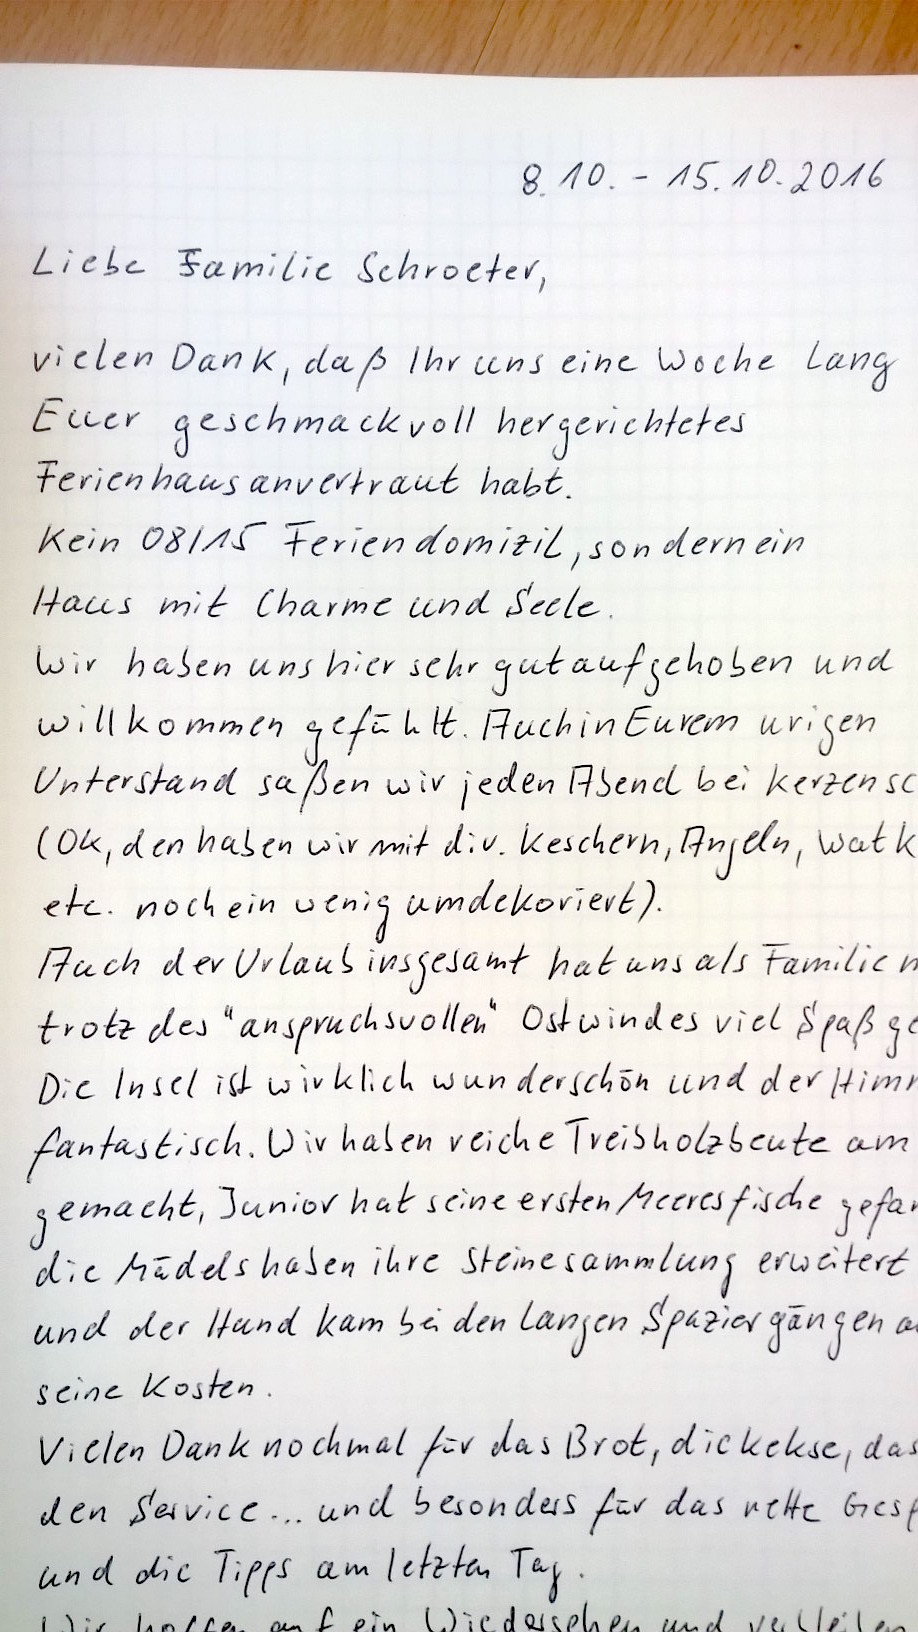 8.10. - 15.10.2016
Liebe Familie Schroeter,
vielen Dank, daß Ihr uns eine Woche lang
Euer geschmackvoll hergerichtetes
Ferienhaus anvertraut habt.
Kein 08/15 Feriendomizil, sondern ein
Haus mit Charme und Seele.
Wir haben uns hier sehr gut aufgehoben und
willkommen gefühlt. Auch in Eurem urigen
Unterstand saßen wir jeden Abend bei Kerzensc
(Ok, den haben wir mit div. Keschern, Angeln, Watk
etc. noch ein wenig umdekoriert).
Auch der Urlaub insgesamt hat uns als Familie
trotz des "anspruchsvollen" Ostwindes viel Spaß ge
Die Insel ist wirklich wunderschön und der Himm
fantastisch. Wir haben reiche Treibholzbeute am
gemacht, Junior hat seine ersten Meeresfische gefan
die Mädels haben ihre Steinesammlung erweitert
und der Hund kam bei den langen Spaziergängen a
seine Kosten.
Vielen Dank nochmal für das Brot, die Kekse, das
den Service... und besonders für das nette Gesp
und die Tipps am letzten Tag.
Wir hoffen auf ein Wiedersehen und verbleiben